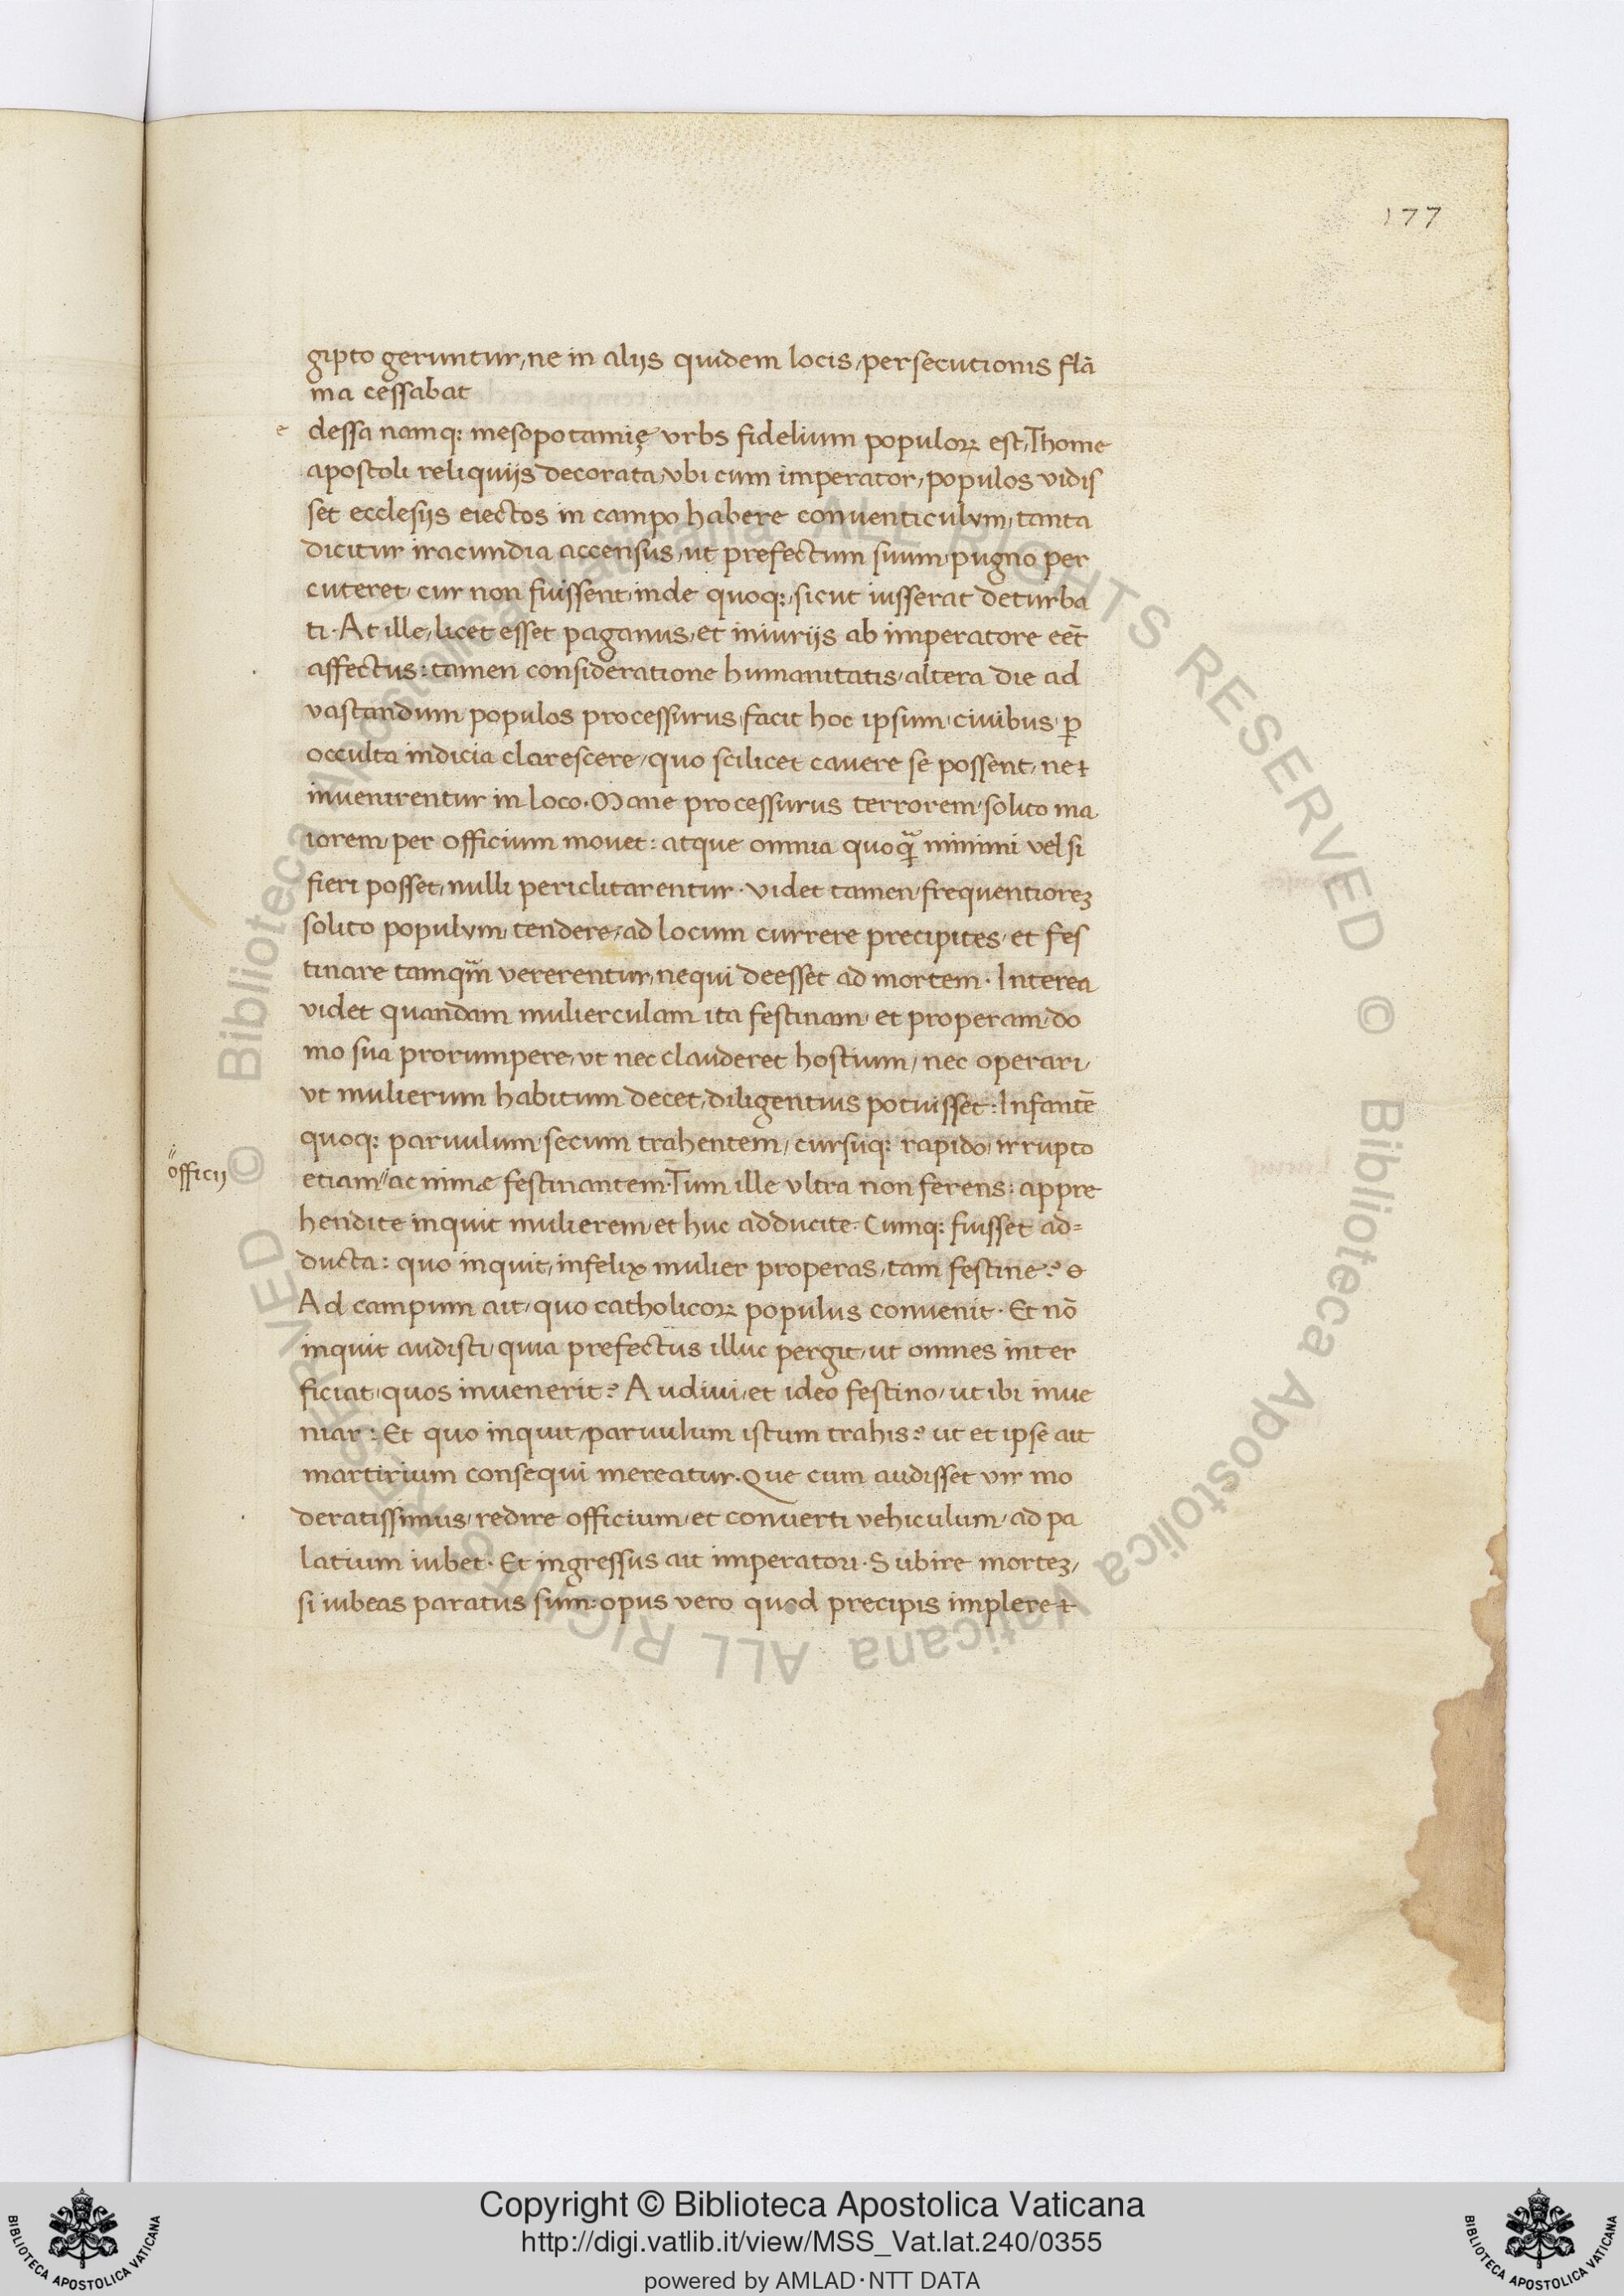 177
gipto geruntur, ne in aliis quidem locis, persecutionis flā
ma cessabat
e dessa namq: mesopotamię urbs fidelium populoꝝ est, Thome
apostoli reliquiis decorata, ubi cum imperator, populos vidis
set ecclesiis eiectos in campo habere conventiculum, tanta
dicitur iracundia accensus, ut prefectum suum pugno per
cuteret, cur non fuissent, inde quoq:, sicut iusserat deturba
ti. At ille, licet esset paganus, et iniuriis ab imperatore eēt
affectus: tamen consideratione humanitatis, altera die ad
vastandum populos processurus, facit hoc ipsum, civibus, ꝑ
occulta indicia clarescere, quo scilicet cavere se possent, net
invenirentur in loco. Mane processurus terrorem, solito ma
iorem, per officium movet: atque omnia quoq minimi vel si
fieri posset, nulli periclitarentur. videt tamen, frequentioreꝫ
solito populum, tendere, ad locum currere precipites, et fes
tinare tamqm vererentur, nequi deesset ad mortem. Interea
videt quandam mulierculam ita festinam, et properam, do
mo sua prorumpere, ut nec clauderet hostium, nec operari,
ut mulierum habitum decet, diligentius potuisset: Infantē
quoq: parvulum, secum trahentem, cursuq: rapido, irrupto
officii
etiam ac nimæ festinantem. Tum ille ultra non ferens: appre
hendite inquit mulierem, et huc adducite. Cumq: fuisset ad=
ducta: quo inquit, infelix mulier properas, tam festine?
Ad campum ait, quo catholicoꝝ populus convenit. Et nō
inquit audisti, quia prefectus illuc pergit, ut omnes inter
ficiat, quos invenerit? Audivi, et ideo festino, ut ibi inve
niar: Et quo inquit, parvulum istum trahis? ut et ipse ait
martirium consequi mereatur. Que cum audisset vir mo
deratissimus, redire officium, et converti vehiculum, ad pa
latium iubet. Et ingressus ait imperatori. Subire morteꝫ,
si iubeas paratus sum: opus vero quod precipis implere t
© Biblioteca Apostolica Vaticana ALL RIGHTS RESERVED © Biblioteca Apostolica Vaticana ALL RIGHTS RESERVED
Copyright © Biblioteca Apostolica Vaticana
http://digi.vatlib.it/view/MSS_Vat.lat.240/0355
powered by AMLAD·NTT DATA
BIBLIOTECA APOSTOLICA VATICANA
BIBLIOTECA APOSTOLICA VATICANA